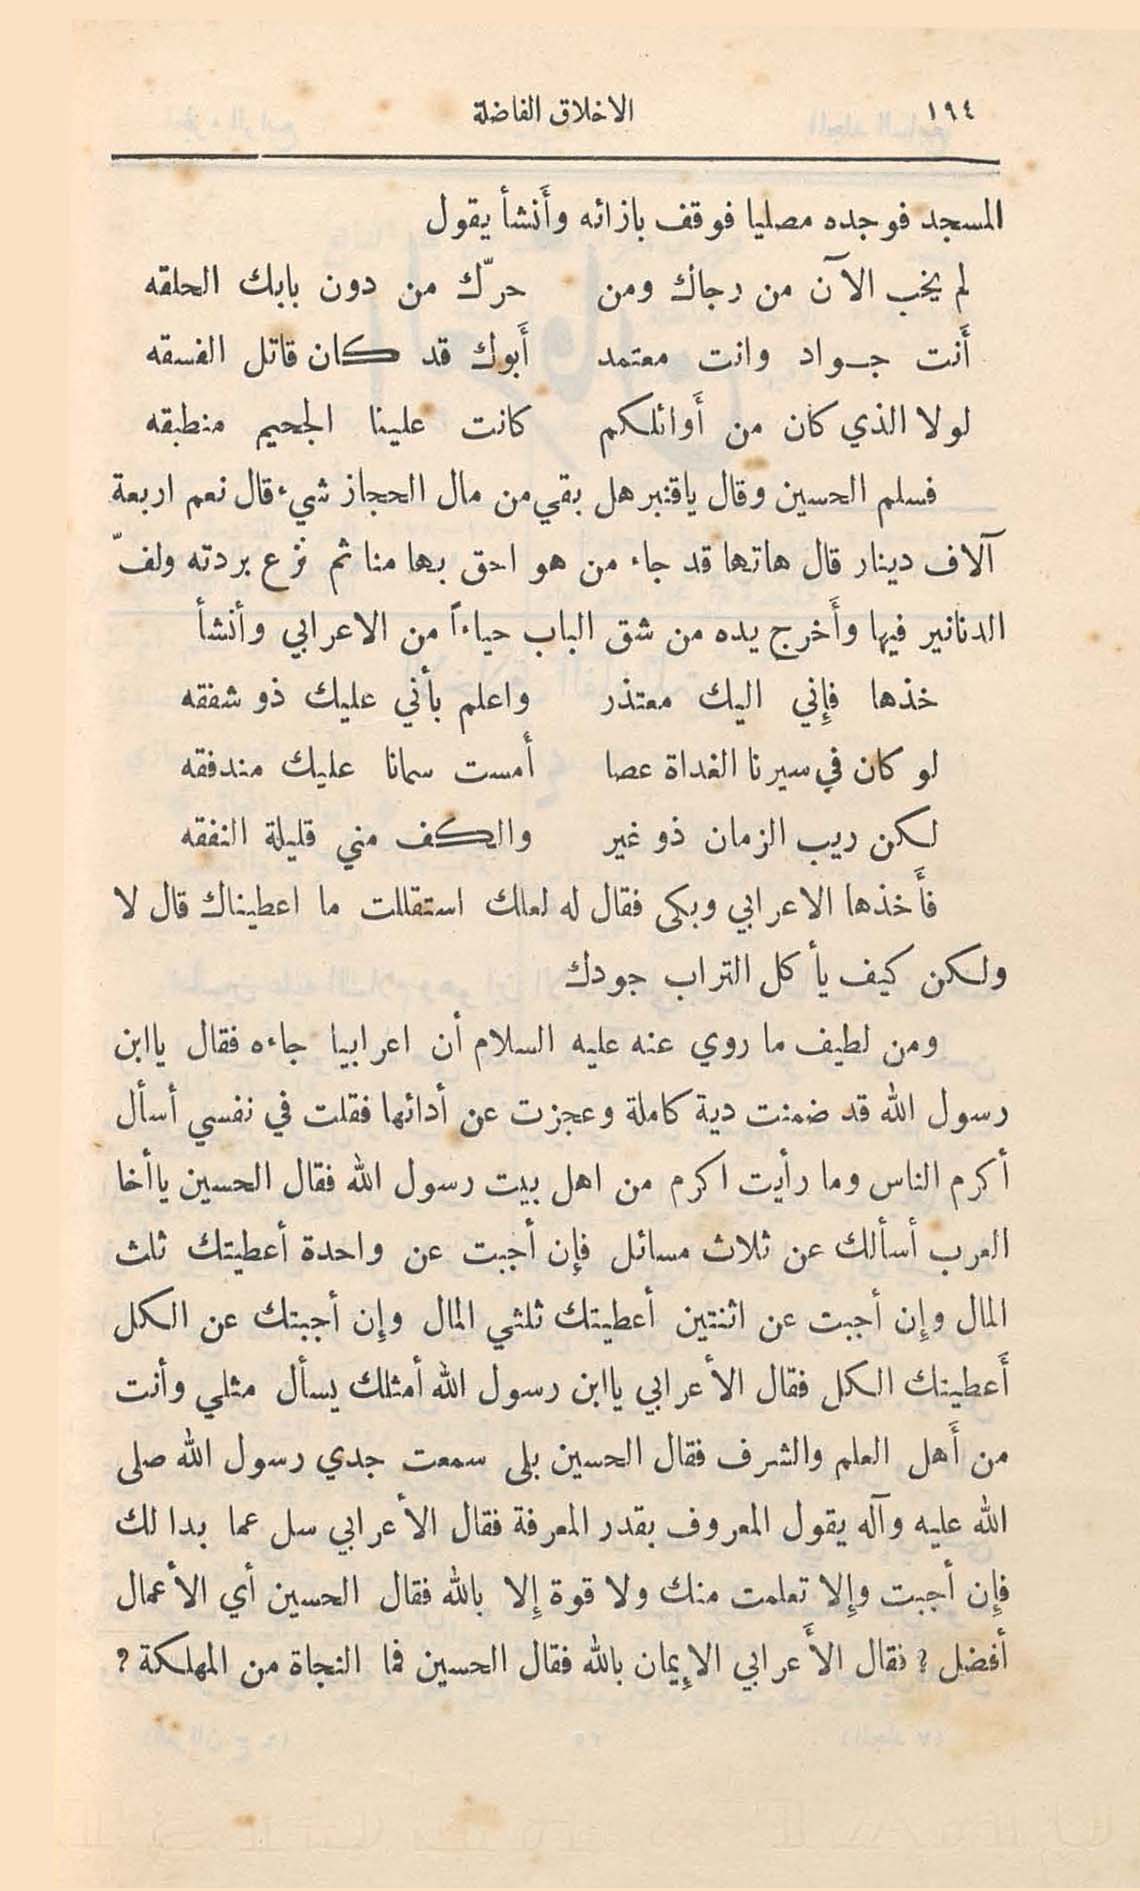 ١٩٤ الاخلاق الفاضلة
المسجد فوجده مصليا فوقف بازائه وأَنشأ يقول
لم يخب الآن من رجاك ومن حرّك من دون بابك الحلقه
أَنت جواد وانت معتمد أَبوك قد كان قاتل الفسقه
لولا الذي كان من أَوائلكم كانت علينا الجحيم منطبقه
فسلم الحسين وقال ياقنبر هل بقي من مال الحجاز شيء قال نعم اربعة
آلاف دينار قال هاتها قد جاء من هو احق بها منا ثم نزع بردته ولفّ
الدنانير فيها وأَخرج يده من شق الباب حياءاً من الاعرابي وأنشأ
خذها فإني اليك معتذر واعلم بأني عليك ذو شفقه
لو كان في سيرنا الغداة عصا أمست سمانا عليك مندفقه
لكن ريب الزمان ذو غير والكف مني قليلة النفقه
فأَخذها الاعرابي وبكى فقال له لعلك استقللت ما اعطيناك قال لا
ولكن كيف يأكل التراب جودك
ومن لطيف ما روي عنه عليه السلام أن اعرابيا جاءه فقال ياابن
رسول الله قد ضمنت دية كاملة وعجزت عن أدائها فقلت في نفسي أسأل
أكرم الناس وما رأيت اكرم من اهل بيت رسول الله فقال الحسين ياأخا
العرب أسألك عن ثلاث مسائل فإن أجبت عن واحدة أعطيتك ثلث
المال وإن أجبت عن اثنتين أعطيتك ثلثي المال وإن أجبتك عن الكل
أَعطيتك الكل فقال الأعرابي ياابن رسول الله أمثلك يسأل مثلي وأنت
من أَهل العلم والشرف فقال الحسين بلى سمعت جدي رسول الله صلى
الله عليه وآله يقول المعروف بقدر المعرفة فقال الأعرابي سل عما بدا لك
فإن أجبت وإلا تعلمت منك ولا قوة إلا بالله فقال الحسين أي الأعمال
أفضل ؟ نقال الأَعرابي الإيمان بالله فقال الحسين فما النجاة من المهلكة ؟